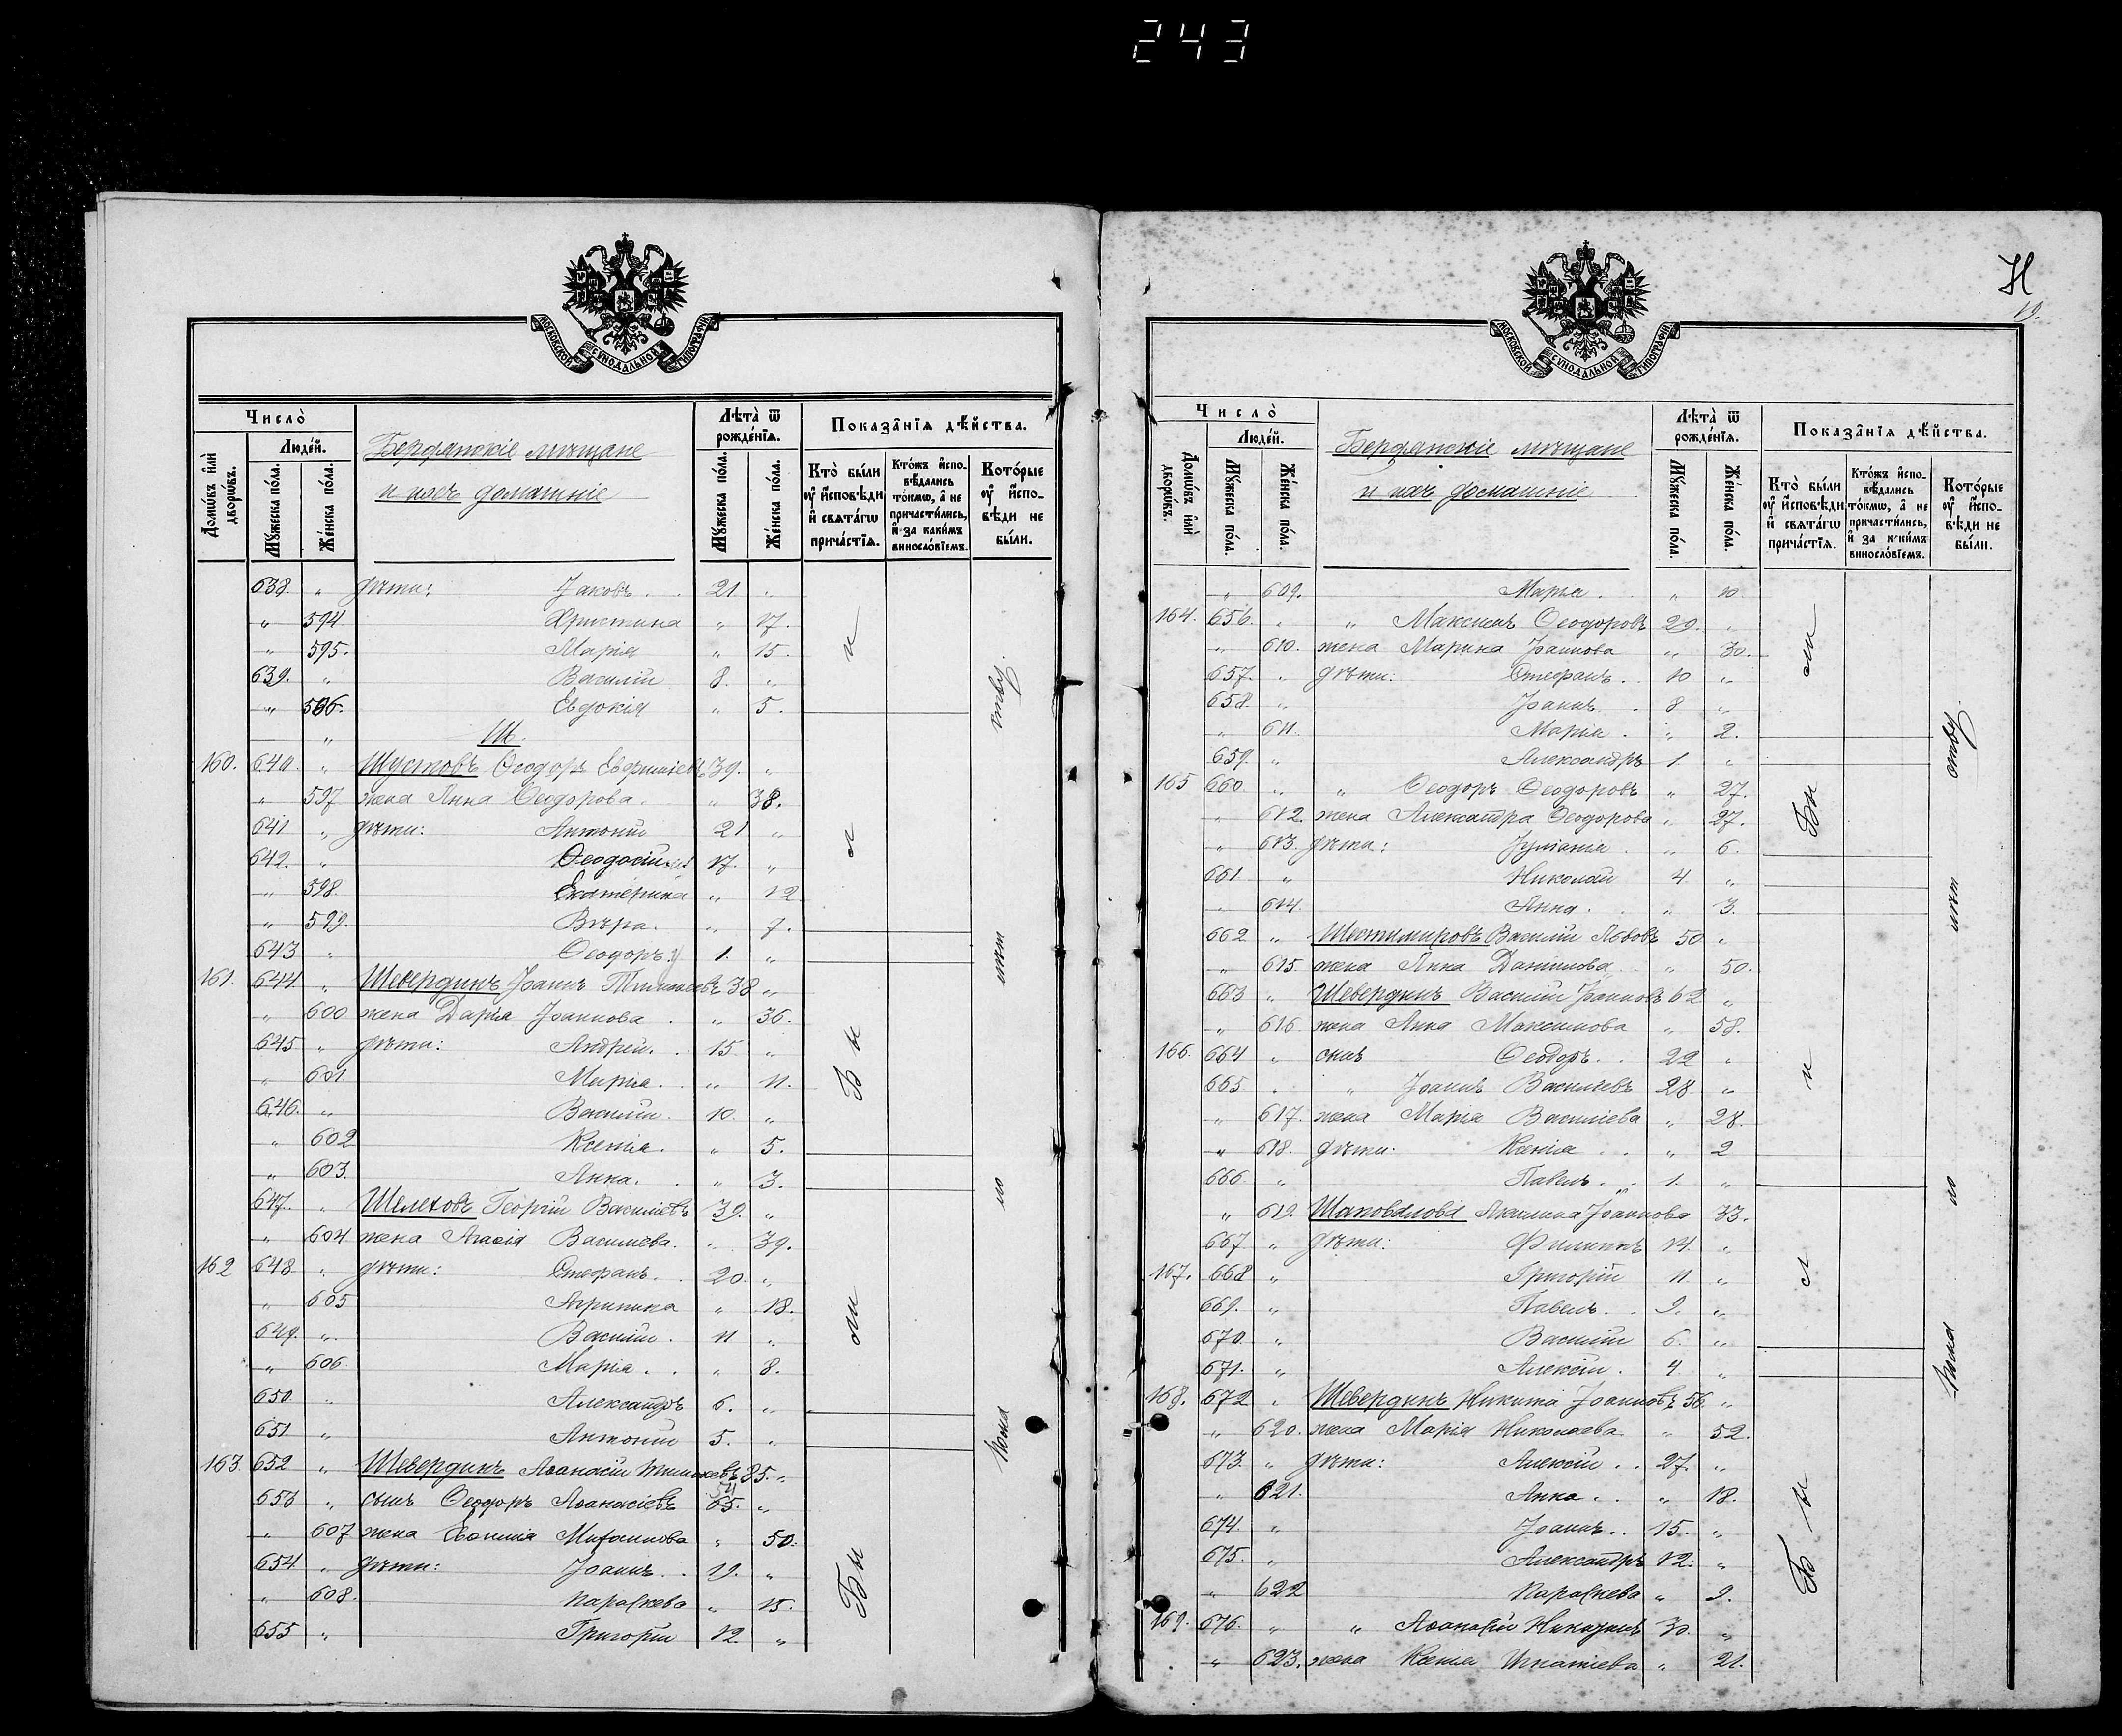 243
МОСКОВСКОЙ СУНОДАЛЬНОЙ ТИПОГРАФІИ
Число̀
Людей.
Домѡвъ или дворѡвъ.
Мꙋжеска пола.
Женска пола.
Бердянскіе мѣщане
и ихъ домашніе
Лѣта ѿ рожденїѧ.
Мꙋжеска пола.
Женска пола.
Показанїѧ дѣйства.
Кто были ᲂу исповѣди и свѧтагѡ причастїѧ.
Ктожъ исповѣдались токмѡ, а не причастились, и за какимъ винословїемъ.
Которые ᲂу исповѣди не были.
638. „ дѣти: Іаковъ 21 „
„ 594 Христина „ 17.
„ 595. Марія „ 15.
639. „ Василій 8. „
„ 596. Евдокія „ 5.
„ Ш.
160. 640. „ Шустовъ Ѳеодоръ 39. „
„ 597 жена Анна Ѳеодорова „ 38.
641 „ дѣти: Антоній 21 „
642. „ Ѳеодосій 17. „
„ 598. Екатерина „ 12
„ 599. Вѣра. „ 7.
643 „ Ѳеодоръ 1. „
161. 644. „ Шевердинъ Іоаннъ 38 „
„ 600 жена Дарья Іоаннова „ 36.
645 „ дѣти: Андрей. 15 „
„ 601 Марія. „ 11.
646. „ Василій. 10. „
„ 602 Ксенія. „ 5.
„ 603. Анна. „ 3.
647. „ Шелеховъ Георгій Василіевъ 39. „
„ 604 жена Агаѳія Василіева. „ 39.
162 648 „ дѣти: Стефанъ. 20. „
„ 605 Агрипина „ 18.
649. „ Василій. 11 „
„ 606. Марія. „ 8.
650 „ Александръ 6. „
651 „ Антоній 5. „
163. 652 „ Шевердинъ Аѳанасій 85. „
653 „ сынъ Ѳеодоръ Аѳанасіевъ 54 „
„ 607 жена Евѳимія Михаилова „ 50.
654 „ дѣти: Іоаннъ 19. „
„ 608. Параскева „ 15.
655 „ Григорій 12 „
Бы ли
Бы ли
по
19.
МОСКОВСКОЙ СУНОДАЛЬНОЙ ТИПОГРАФІИ
Число̀
Людей.
Домѡвъ или дворѡвъ.
Мꙋжеска пола.
Женска пола.
Бердянскіе мѣщане
и ихъ домашніе
Лѣта ѿ рожденїѧ.
Мꙋжеска пола.
Женска пола.
Показанїѧ дѣйства.
Кто были ᲂу исповѣди и свѧтагѡ причастїѧ.
Ктожъ исповѣдались токмѡ, а не причастились, и за к'кимъ винословїемъ.
Которые ᲂу исповѣди не были.
„ 609. Марья. „ 10
164. 656. „ „ Максимъ Ѳеодоровъ 29. „
„ 610. жена Марина Іоаннова „ 30.
657. „ дѣти: Стефанъ. 10 „
658. „ Іоаннъ 8 „
„ 611. Марія. „ 2.
659. „ Александръ 1 „
165 660. „ „ Ѳеодоръ Ѳеодоровъ „ 27.
„ 612. жена Александра Ѳеодорова „ 27.
„ 613. дѣти: Іуліанія. „ 6.
661 „ Николай 4 „
„ 614. Анна. „ 3.
662 „ Шестимировъ Василій Львовъ 50 „
„ 615. жена Анна Даніилова „ 50.
663 „ Шевердинъ Василій Іоанновъ 62 „
„ 616 жена Анна Максимова „ 58.
166. 664 „ сынъ Ѳеодоръ. 22 „
665 „ „ Іоаннъ Василіевъ 28 „
„ 617. жена Марья Василіева „ 28.
„ 618. дѣти: Ксенія „ 2
666. „ Павелъ. 1. „
„ 619. Шаповалова Акилина Іоаннова 33.
667 „ дѣти: Филиппъ 14. „
167. 668 „ Григорій 11 „
669. „ Павелъ. 9. „
670. „ Василій 6. „
671. „ Алексій. 4 „
168. 672 „ Шевердинъ Никита Іоанновъ 56. „
„ 620. жена Марія Николаева „ 52.
673. „ дѣти: Алексій 27. „
„ 621. Анна „ 18.
674. „ Іоаннъ. 15. „
675. „ Александръ 12. „
„ 622 Параскева „ 9.
169. 676. „ „ Аѳанасій Никитинъ 30. „
„ 623. жена Ксенія Игнатіева „ 21.
Бы ли
Бы ли
по